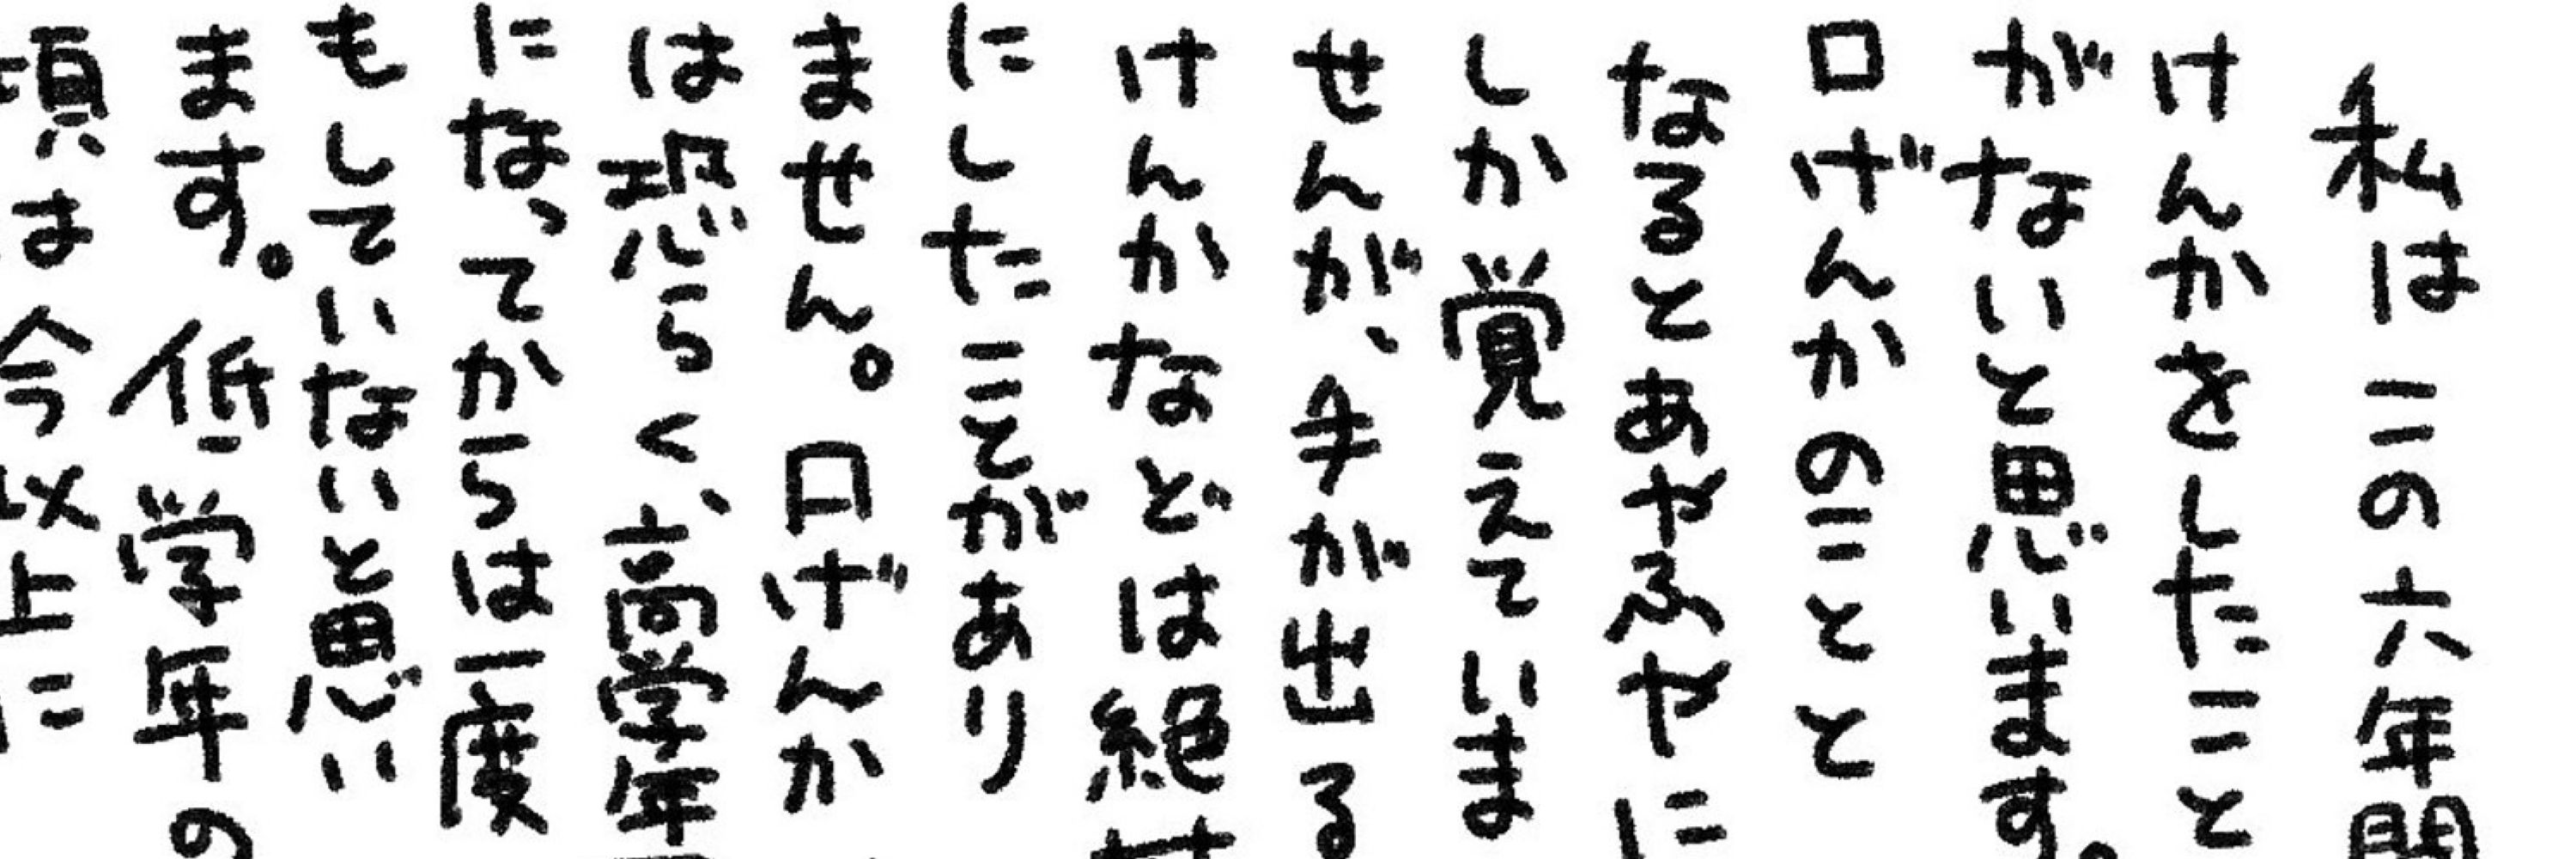 私はこの六年間
けんかをしたこと
がないと思います。
口げんかのことと
なるとあやふやに
しか覚えていま
せんが、手が出る
けんかなどは絶対
にしたことがあり
ません。口げんか
は恐らく、高学年
になってからは一度
もしていないと思い
ます。低学年の
頃は今以上に